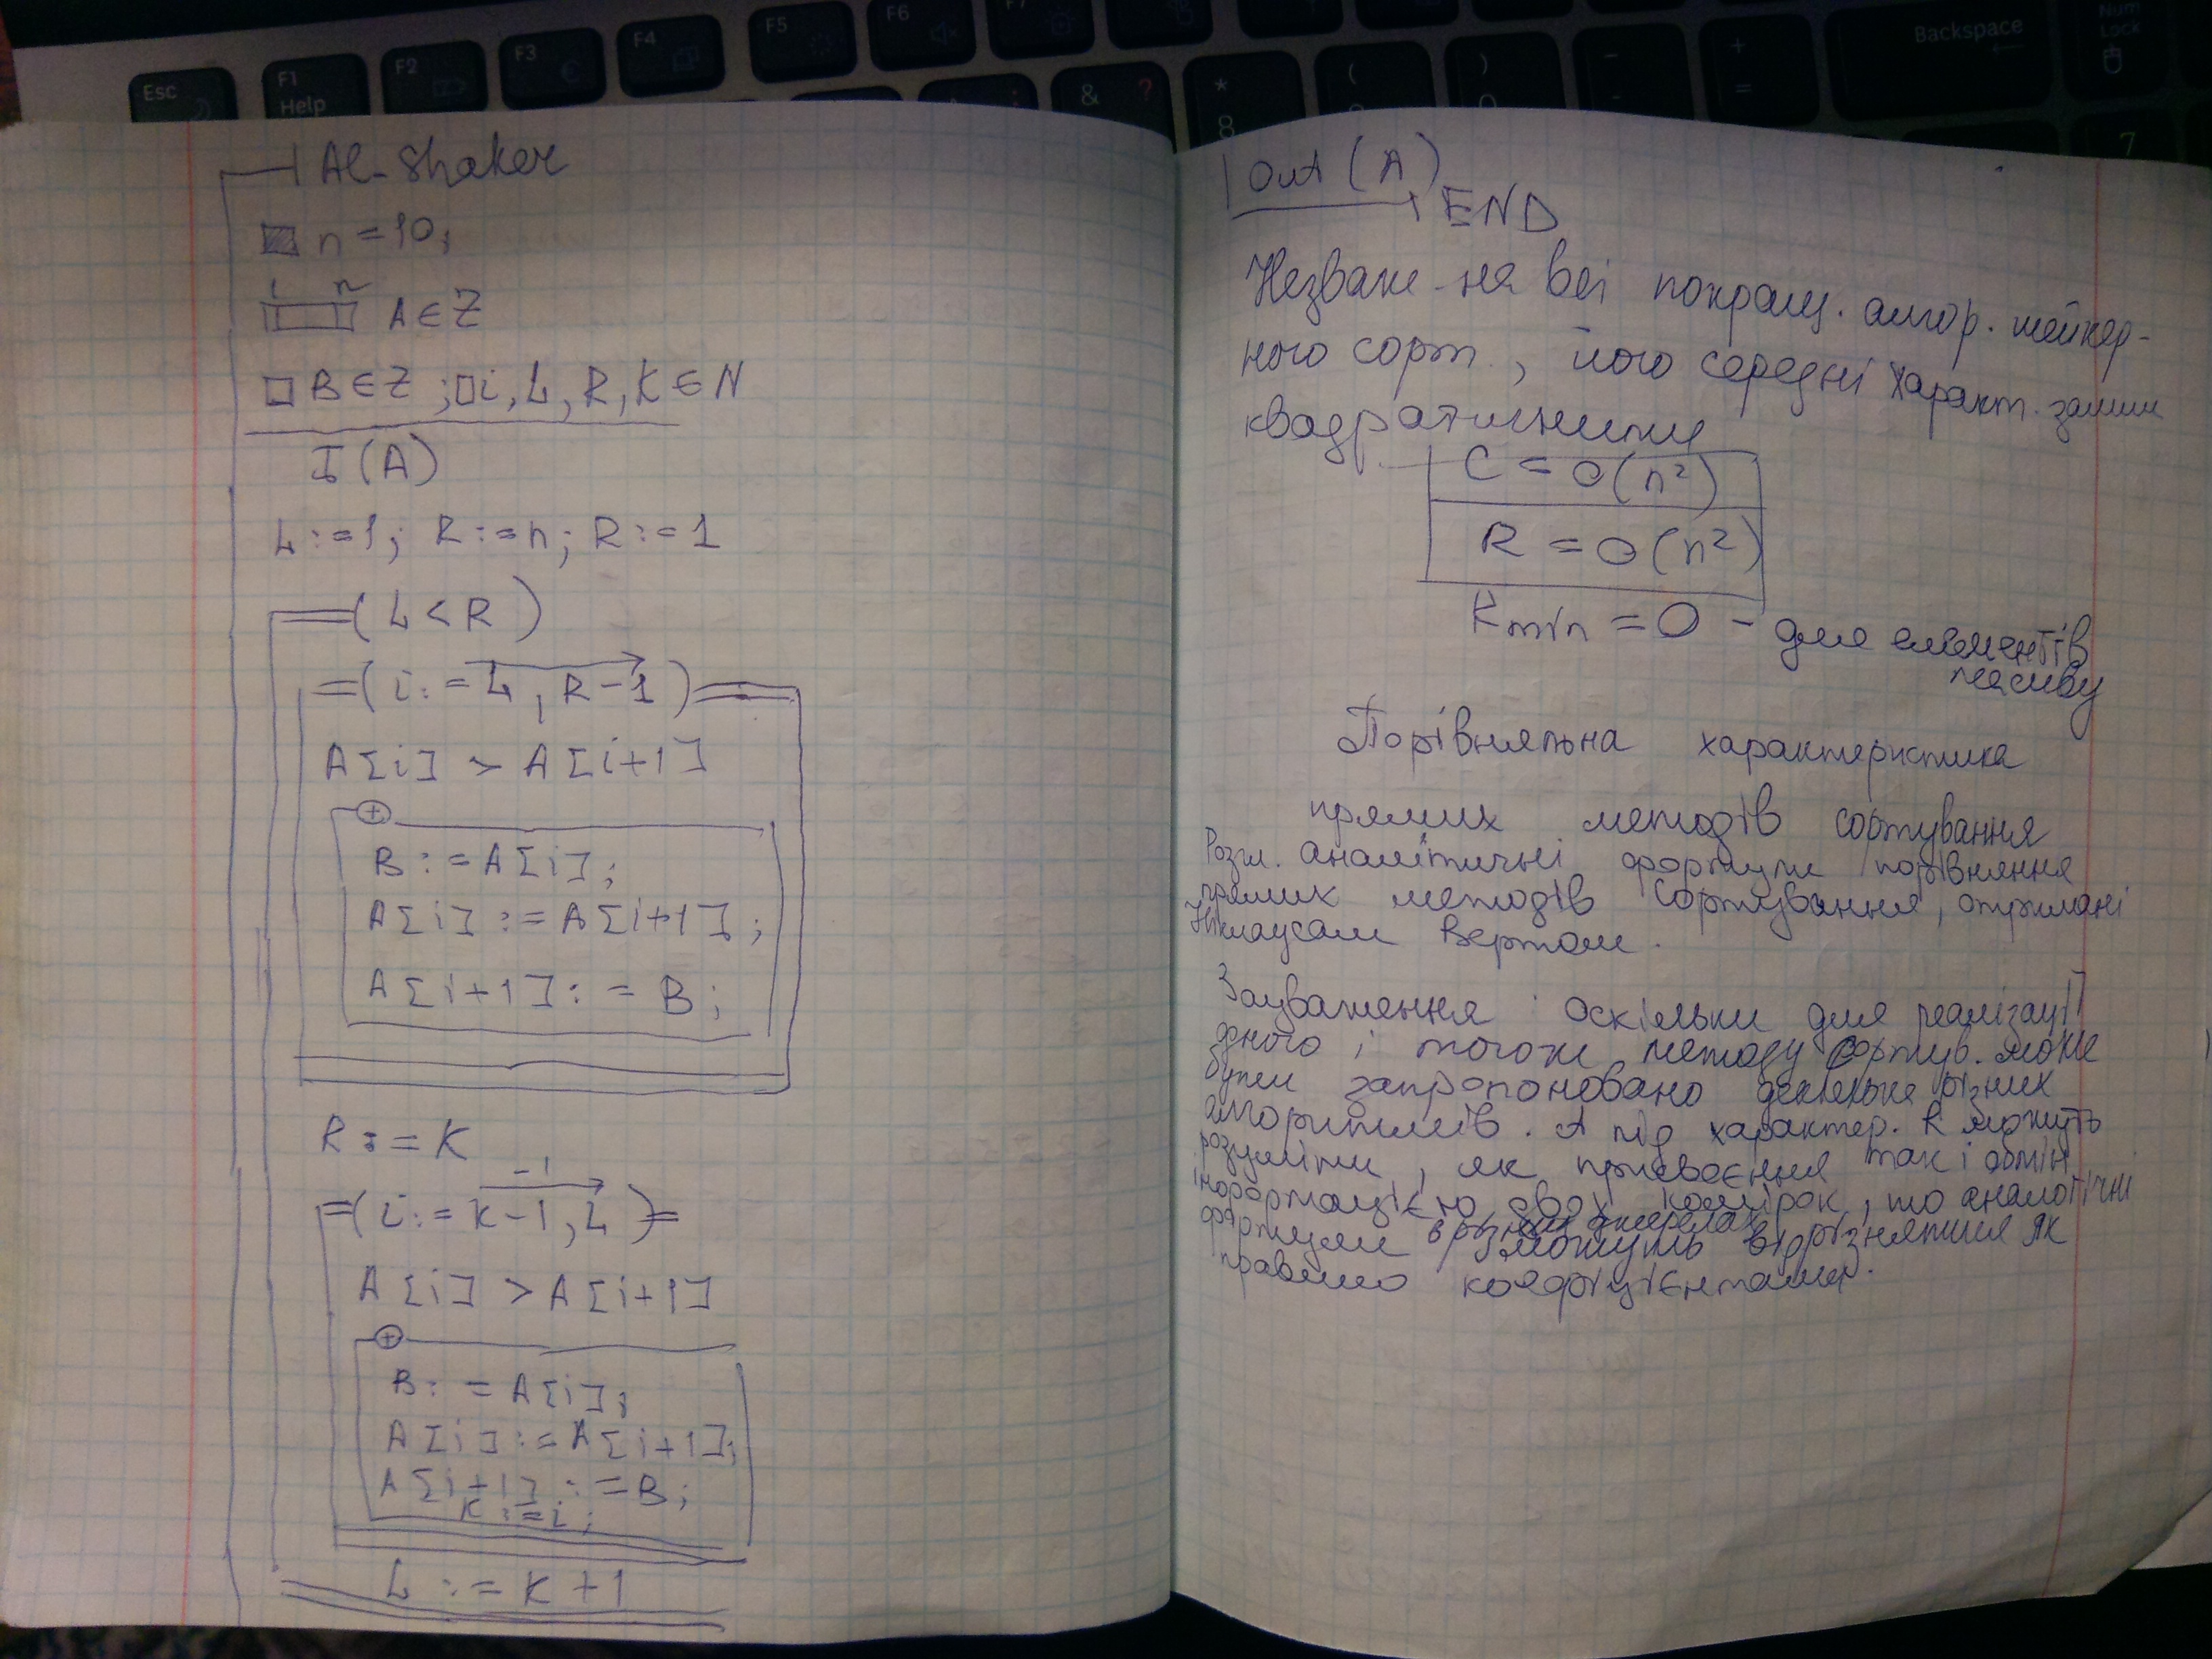 Esc
F1
Help
F2
F3
F4
F5
F6
F7
& ?
*
8
(
)
-
+
=
Backspace
Num
Lock
7
Al-Shaker
n = 10;
1 n
A ∈ Z
B ∈ Z ; i, L, R, K ∈ N
I (A)
L := 1; R := n; R := 1
(L < R)
(i := L, R-1)
A[i] > A[i+1]
+
B := A[i];
A[i] := A[i+1];
A[i+1] := B;
R := K
-1
(i := K-1, L)
A[i] > A[i+1]
+
B := A[i];
A[i] := A[i+1];
A[i+1] := B;
K := i;
L := K + 1
Out (A)
END
Незваж. на всі покращ. алгор. шейкер-
ного сорт., його середні характ. залиш
квадратичними
C = O(n²)
R = O(n²)
Kmin = 0 - для елементів
масиву
Порівняльна характеристика
прямих методів сортування
Розгл. аналітичні формули порівняння
прямих методів сортування, отримані
Ніклаусом Вертом.
Зауваження: оскільки для реалізації
дного і того ж методу сортув. може
бути запропоновано декілька різних
алгоритмів. А під характер. R можуть
розуміти, як присвоєння так і обмін
інформацією двох комірок, то аналогічні
формули в різних джерелах можуть відрізнятися як
правило коефіцієнтами.